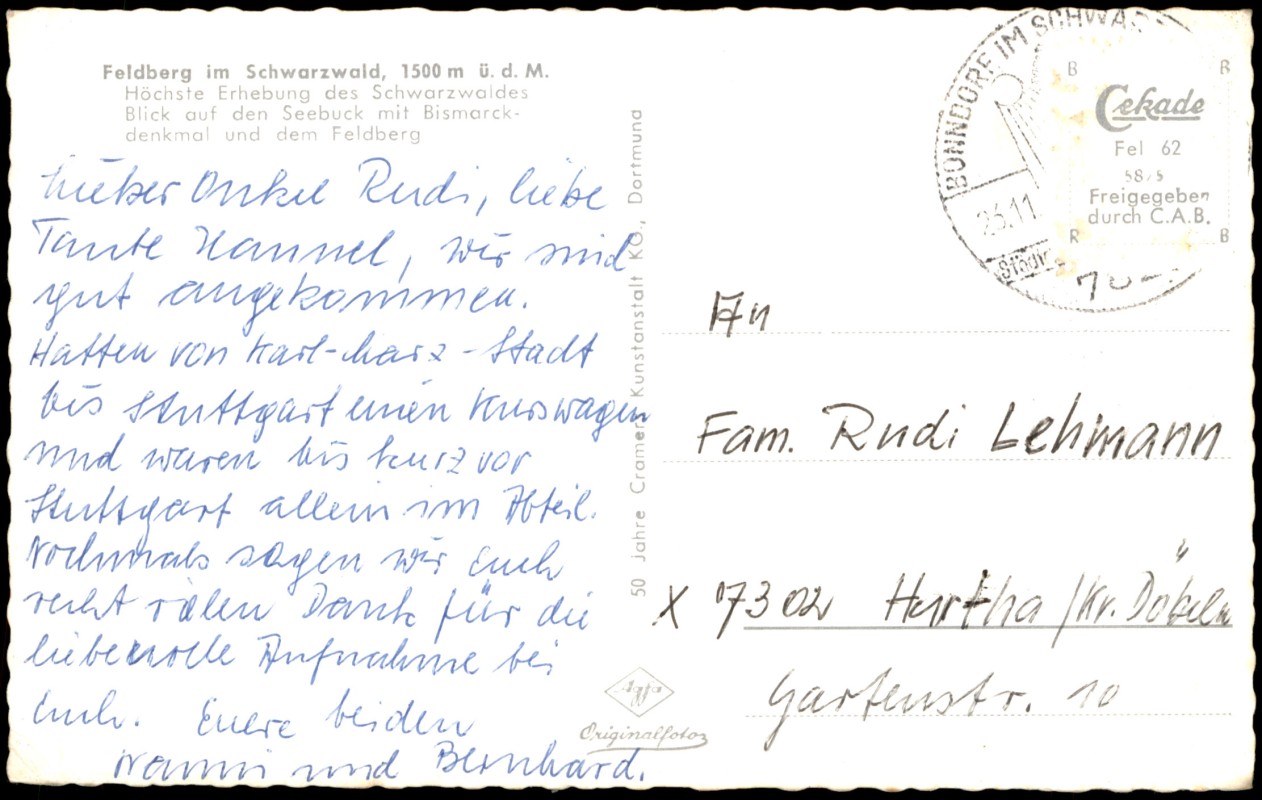 Feldberg im Schwarzwald, 1500 m ü. d. M.
Höchste Erhebung des Schwarzwaldes
Blick auf den Seebuck mit Bismarck-
denkmal und dem Feldberg
Lieber Onkel Rudi, liebe
Tante Hannel, wir sind
gut angekommen.
Hatten von Karl-Marx-Stadt
bis Stuttgart einen Kurswagen
und waren bis kurz vor
Stuttgart allein im Abteil.
Nochmals sagen wir Euch
recht vielen Dank für die
liebevolle Aufnahme bei
Euch. Euere beiden
Nanni und Bernhard.
50 Jahre Cramers Kunstanstalt KG., Dortmund
Agfa
Originalfotos
BONNDORF IM SCHWA
23.11.
Städt
B B
Cekade
Fel 62
58/5
Freigegeben
durch C.A.B.
R B
An
Fam. Rudi Lehmann
X 7302 Hartha /Kr. Döbeln
Gartenstr. 10